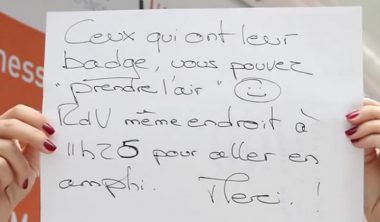 ness
Ceux qui ont leur
badge, vous pouvez
"prendre l'air" ☺
RdV même endroit à
11h25 pour aller en
amphi. Merci !